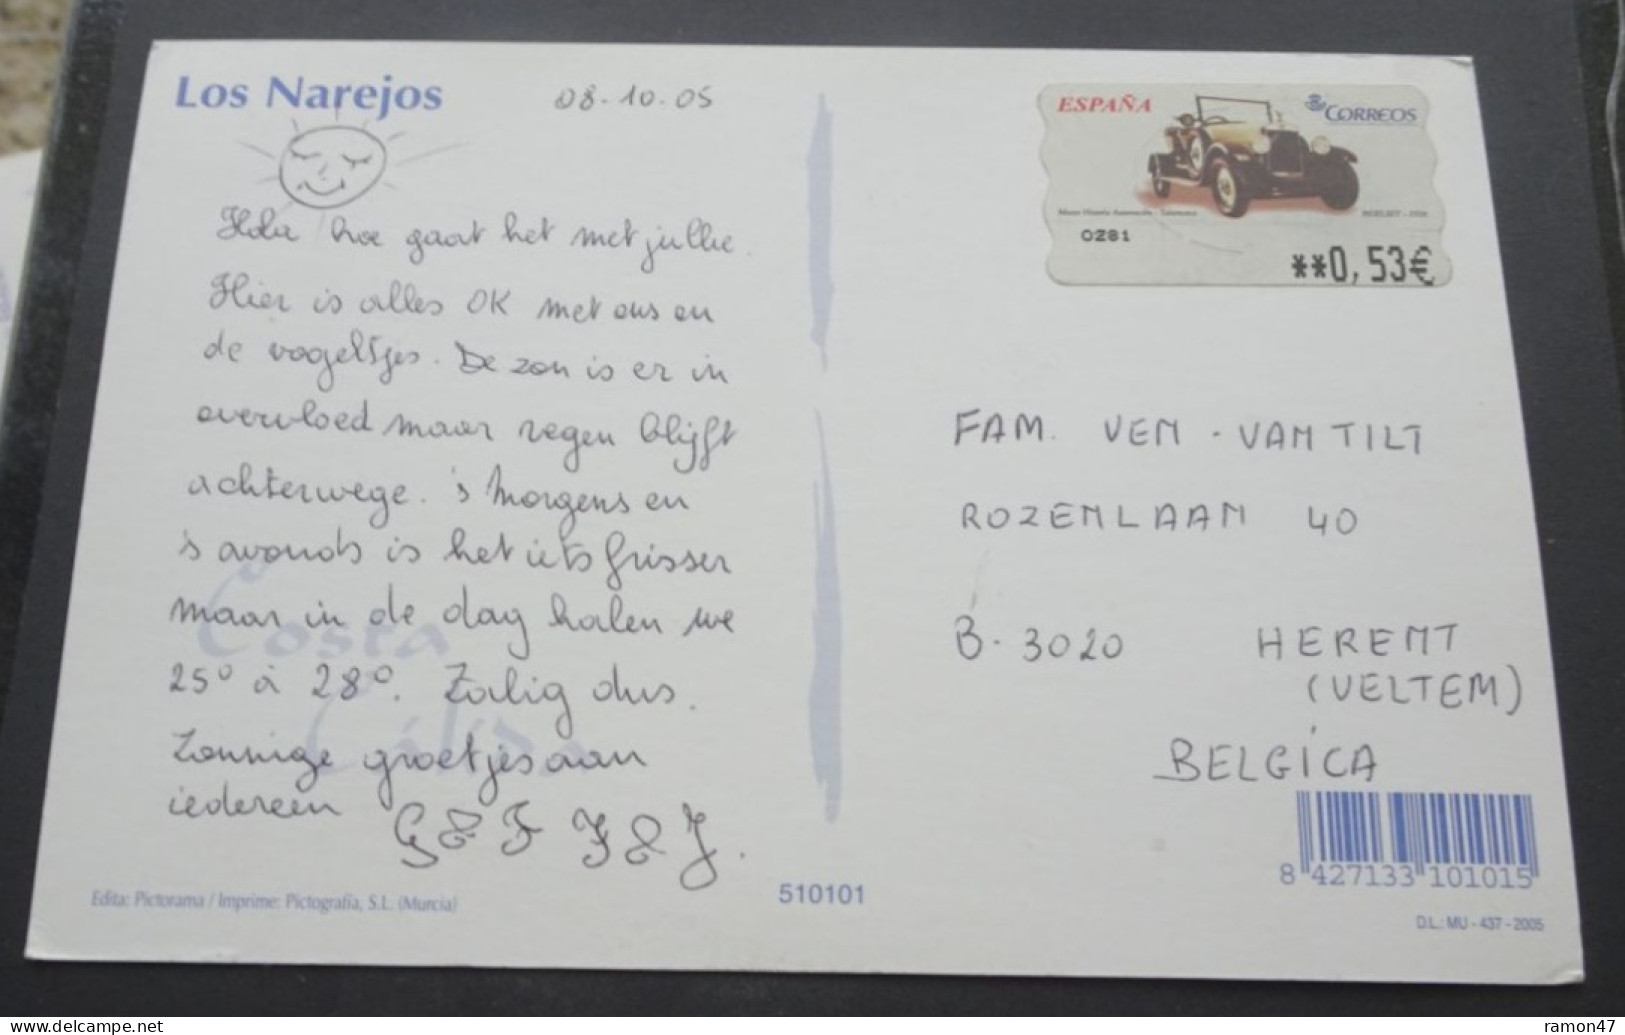 Los Narejos
08.10.05
Hola hoe gaat het met jullie.
Hier is alles OK met ons en
de vogeltjes. De zon is er in
overvloed maar regen blijft
achterwege. 's Morgens en
's avonds is het iets frisser
maar in de dag halen we
25° à 28°. Zalig dus.
Zonnige groetjes aan
iedereen G & F F & J.
Costa
Cálida
Edita: Pictorama / Imprime: Pictografía, S.L. (Murcia)
510101
ESPAÑA
CORREOS
Museo Historia Automoción - Salamanca
0281
**0,53€
FAM. VEN - VANTILT
ROZENLAAN 40
B. 3020 HERENT
(VELTEM)
BELGÍCA
8 427133 101015
D.L.: MU - 437 - 2005
www.delcampe.net
ramon47